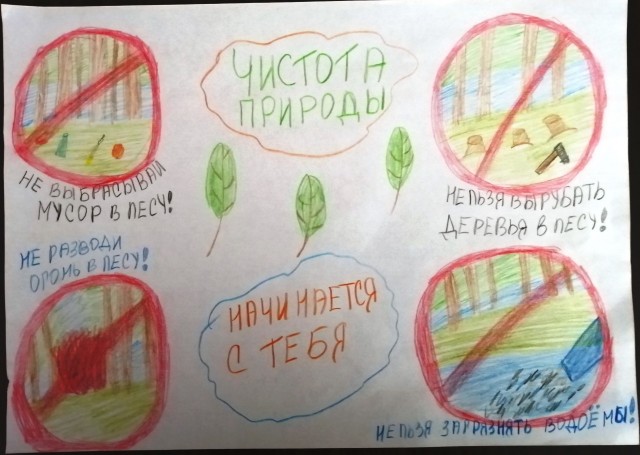 ЧИСТОТА
ПРИРОДЫ
НЕ ВЫБРАСЫВАЙ
МУСОР В ЛЕСУ!
НЕЛЬЗЯ ВЫРУБАТЬ
ДЕРЕВЬЯ В ЛЕСУ!
НЕ РАЗВОДИ
ОГОНЬ В ЛЕСУ!
НАЧИНАЕТСЯ
С ТЕБЯ
НЕЛЬЗЯ ЗАГРАЗНЯТЬ ВОДОЁМЫ!